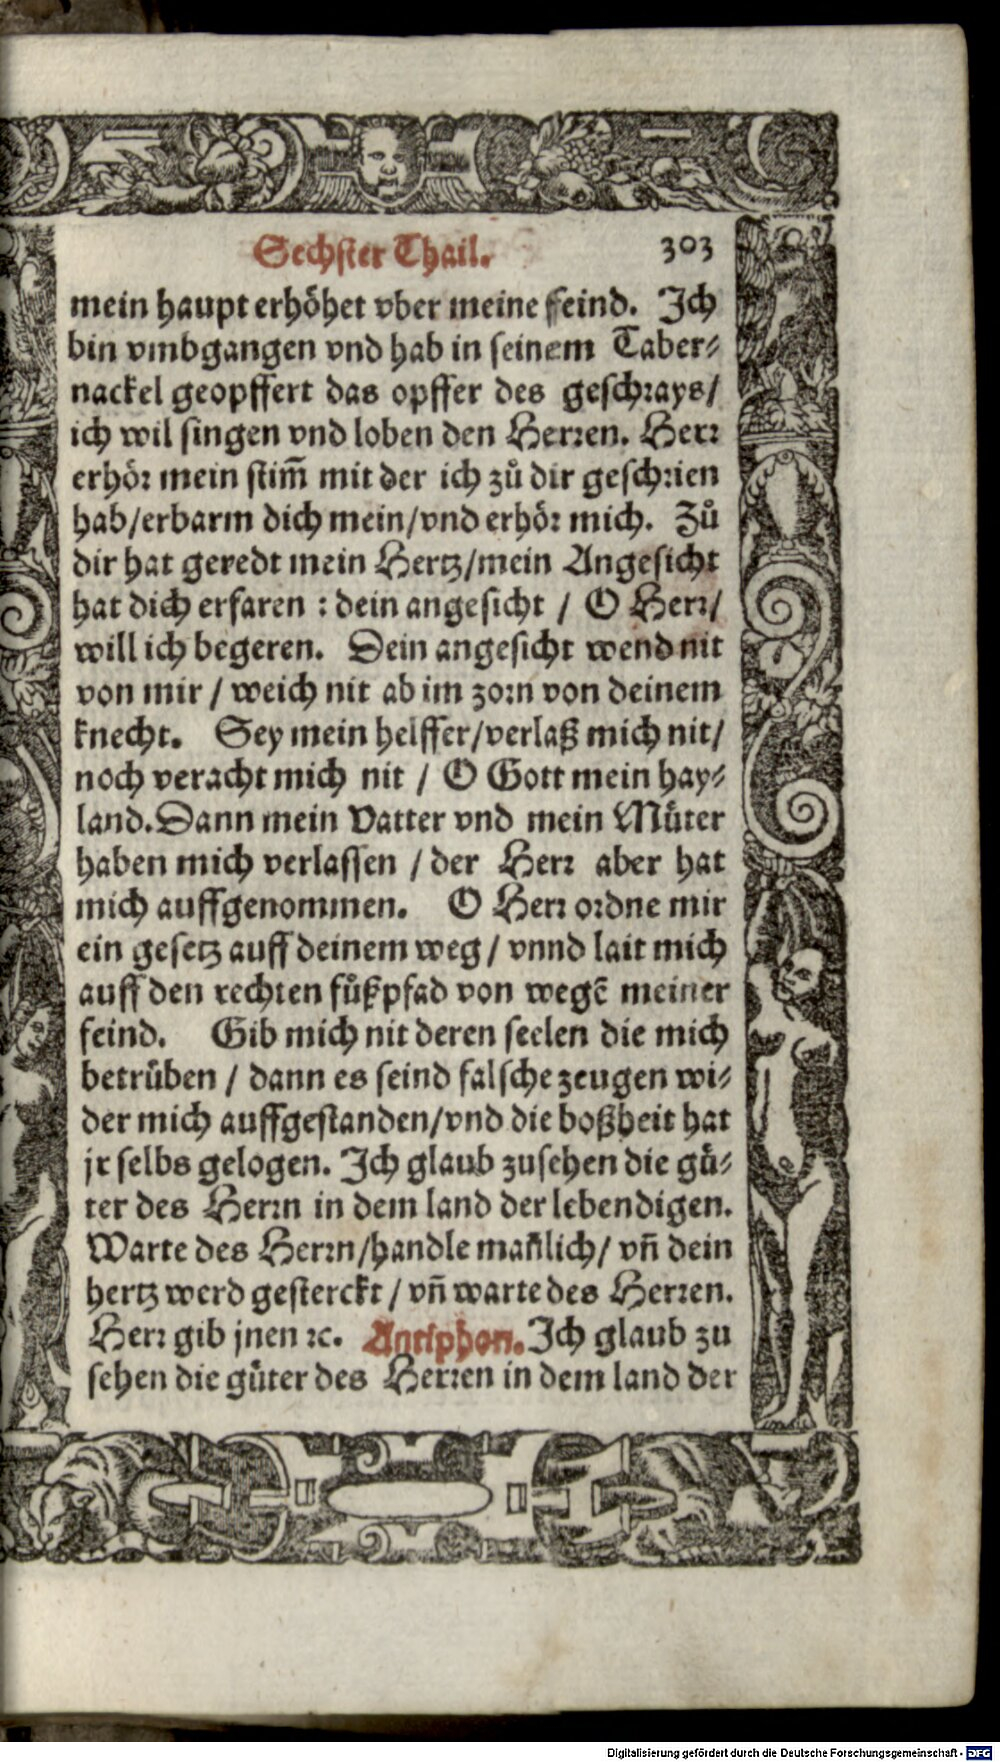 Sechster Thail. 303
mein haupt erhöhet vber meine feind. Ich
bin vmbgangen vnd hab in seinem Taber⸗
nackel geopffert das opffer des geschrays/
ich wil singen vnd loben den Herren. Herr
erhör mein stim̄ mit der ich zů dir geschrien
hab/erbarm dich mein/vnd erhör mich. Zů
dir hat geredt mein Hertz/mein Angesicht
hat dich erfaren : dein angesicht / O Herr/
will ich begeren. Dein angesicht wend nit
von mir / weich nit ab im zorn von deinem
knecht. Sey mein helffer/verlaß mich nit/
noch veracht mich nit / O Gott mein hay⸗
land. Dann mein Vatter vnd mein Můter
haben mich verlassen / der Herr aber hat
mich auffgenommen. O Herr ordne mir
ein gesetz auff deinem weg / vnnd lait mich
auff den rechten fůßpfad von wegē meiner
feind. Gib mich nit deren seelen die mich
betrüben / dann es seind falsche zeugen wi⸗
der mich auffgestanden/vnd die boßheit hat
jr selbs gelogen. Ich glaub zusehen die gü⸗
ter des Herrn in dem land der lebendigen.
Warte des Herrn/handle mañlich/ vñ dein
hertz werd gesterckt / vñ warte des Herren.
Herr gib jnen ꝛc. Antiphon. Ich glaub zu
sehen die güter des Herren in dem land der
Digitalisierung gefördert durch die Deutsche Forschungsgemeinschaft - DFG